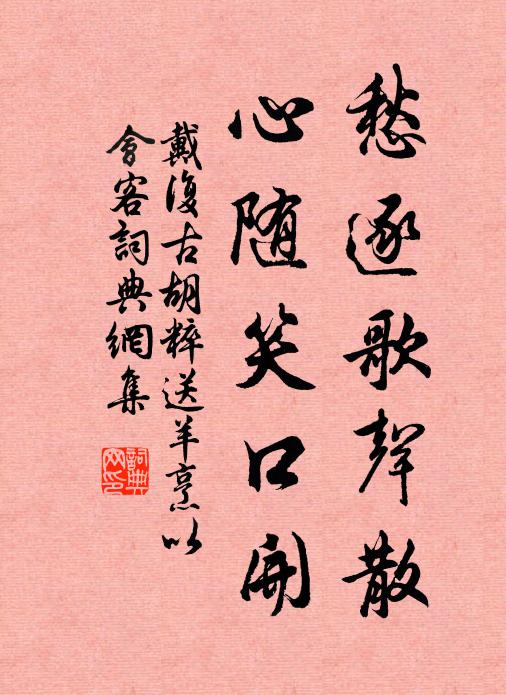 愁逐歌聲散
心随笑口開
戴復古胡粹送羊烹以
會客詞典網集
詞典
网印